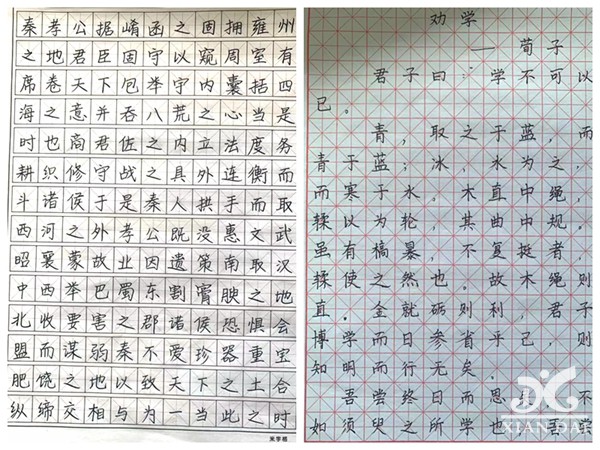 秦孝公据崤函之固拥雍州
之地君臣固守以窥周室有
席卷天下包举宇内囊括四
海之意并吞八荒之心当是
时也商君佐之内立法度务
耕织修守战之具外连衡而
斗诸侯于是秦人拱手而取
西河之外孝公既没惠文武
昭襄蒙故业因遗策南取汉
中西举巴蜀东割膏腴之地
北收要害之郡诸侯恐惧会
盟而谋弱秦不爱珍器重宝
肥饶之地以致天下之士合
纵缔交相与为一当此之时
米字格
劝学
——荀子
君子曰：学不可以
已。
青，取之于蓝，而
青于蓝；冰，水为之，
而寒于水。木直中绳，
輮以为轮，其曲中规。
虽有槁暴，不复挺者，
輮使之然也。故木绳则
直。金就砺则利，君子
博学而日参省乎己，则
知明而行无矣。
吾尝终日而思 不
如须臾之所学也，吾尝
XIANDAI